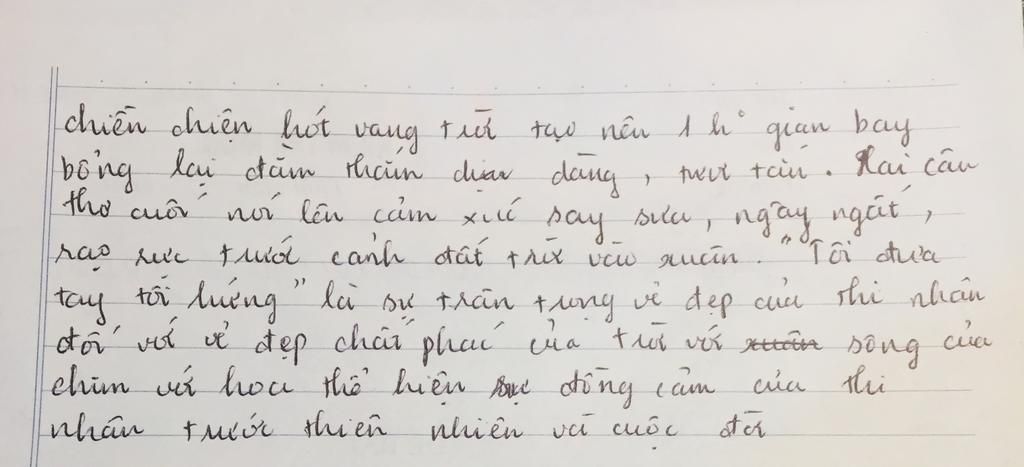 chiền chiện hót vang trời tạo nên 1 k° gian bay
bổng lại đằm thắm dịu dàng, tươi tắn. Hai câu
thơ cuối nói lên cảm xúc say sưa, ngây ngất,
rạo rực trước cảnh đất trời vào xuân. "Tôi đưa
tay tôi hứng" là sự trân trọng vẻ đẹp của thi nhân
đối với vẻ đẹp chất phác của trời với sông của
chim với hoa thể hiện sự đồng cảm của thi
nhân trước thiên nhiên và cuộc đời